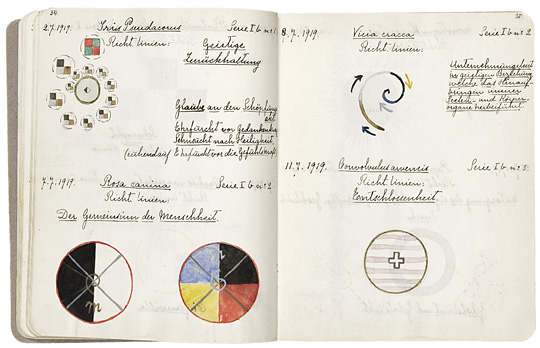 34.
2.7.1919. Iris Pseudacorus Serie I b. nr 1
Richtlinien:
Geistige
Zurückhaltung
Glaube an den Schöpfung
Ehrfurcht vor Gedanken
Sehnsucht nach Heiligkeit,
Ehrfurcht vor die Gefühlskraft
7.7.1919. Rosa canina Serie I b. nr 2
Richtlinien:
Der Gemeinsinn der Menschheit.
35.
8.7.1919. Vicia cracca Serie I b. nr 2
Richtlinien:
Unternehmungslust
in geistigen Beziehung
welche das
unserer
Seelen- und Körper
organe herbeiführt.
11.7.1919. Convolvulus arvensis Serie I b. nr 3
Richtlinien:
Entschlossenheit.